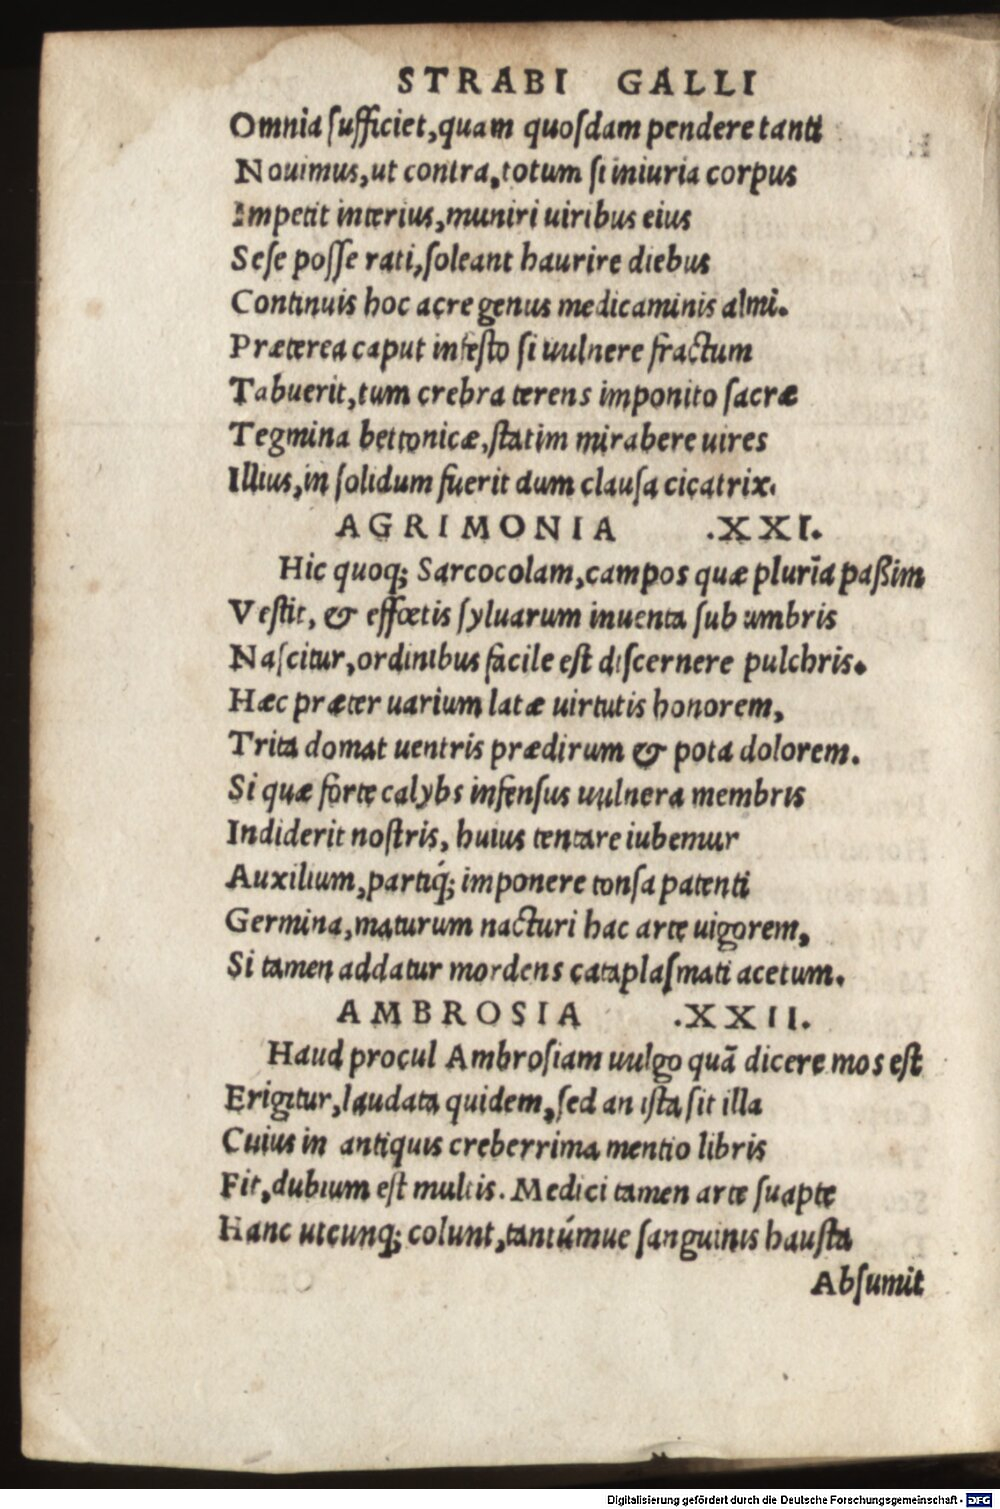 STRABI GALLI
Omnia ſufficiet, quam quoſdam pendere tanti
Nouimus, ut contra, totum ſi iniuria corpus
Impetit interius, muniri uiribus eius
Seſe poſſe rati, ſoleant haurire diebus
Continuis hoc acre genus medicaminis almi.
Præterea caput infeſto ſi uulnere fractum
Tabuerit, tum crebra terens imponito ſacræ
Tegmina bettonicæ, ſtatim mirabere uires
Illius, in ſolidum fuerit dum clauſa cicatrix.
AGRIMONIA .XXI.
Hic quoq; Sarcocolam, campos quæ plurīa paßim
Veſtit, & effœtis ſyluarum inuenta ſub umbris
Naſcitur, ordinibus facile eſt diſcernere pulchris.
Hæc præter uarium latæ uirtutis honorem,
Trita domat uentris prædirum & pota dolorem.
Si quæ forte calybs infenſus uulnera membris
Indiderit noſtris, huius tentare iubemur
Auxilium, partiq́; imponere tonſa patenti
Germina, maturum nacturi hac arte uigorem,
Si tamen addatur mordens cataplaſmati acetum.
AMBROSIA .XXII.
Haud procul Ambroſiam uulgo quā dicere mos eſt
Erigitur, laudata quidem, ſed an iſta ſit illa
Cuius in antiquis creberrima mentio libris
Fit, dubium eſt multis. Medici tamen arte ſuapte
Hanc utcunq; colunt, tantúmue ſanguinis hauſta
Abſumit
Digitalisierung gefördert durch die Deutsche Forschungsgemeinschaft - DFG